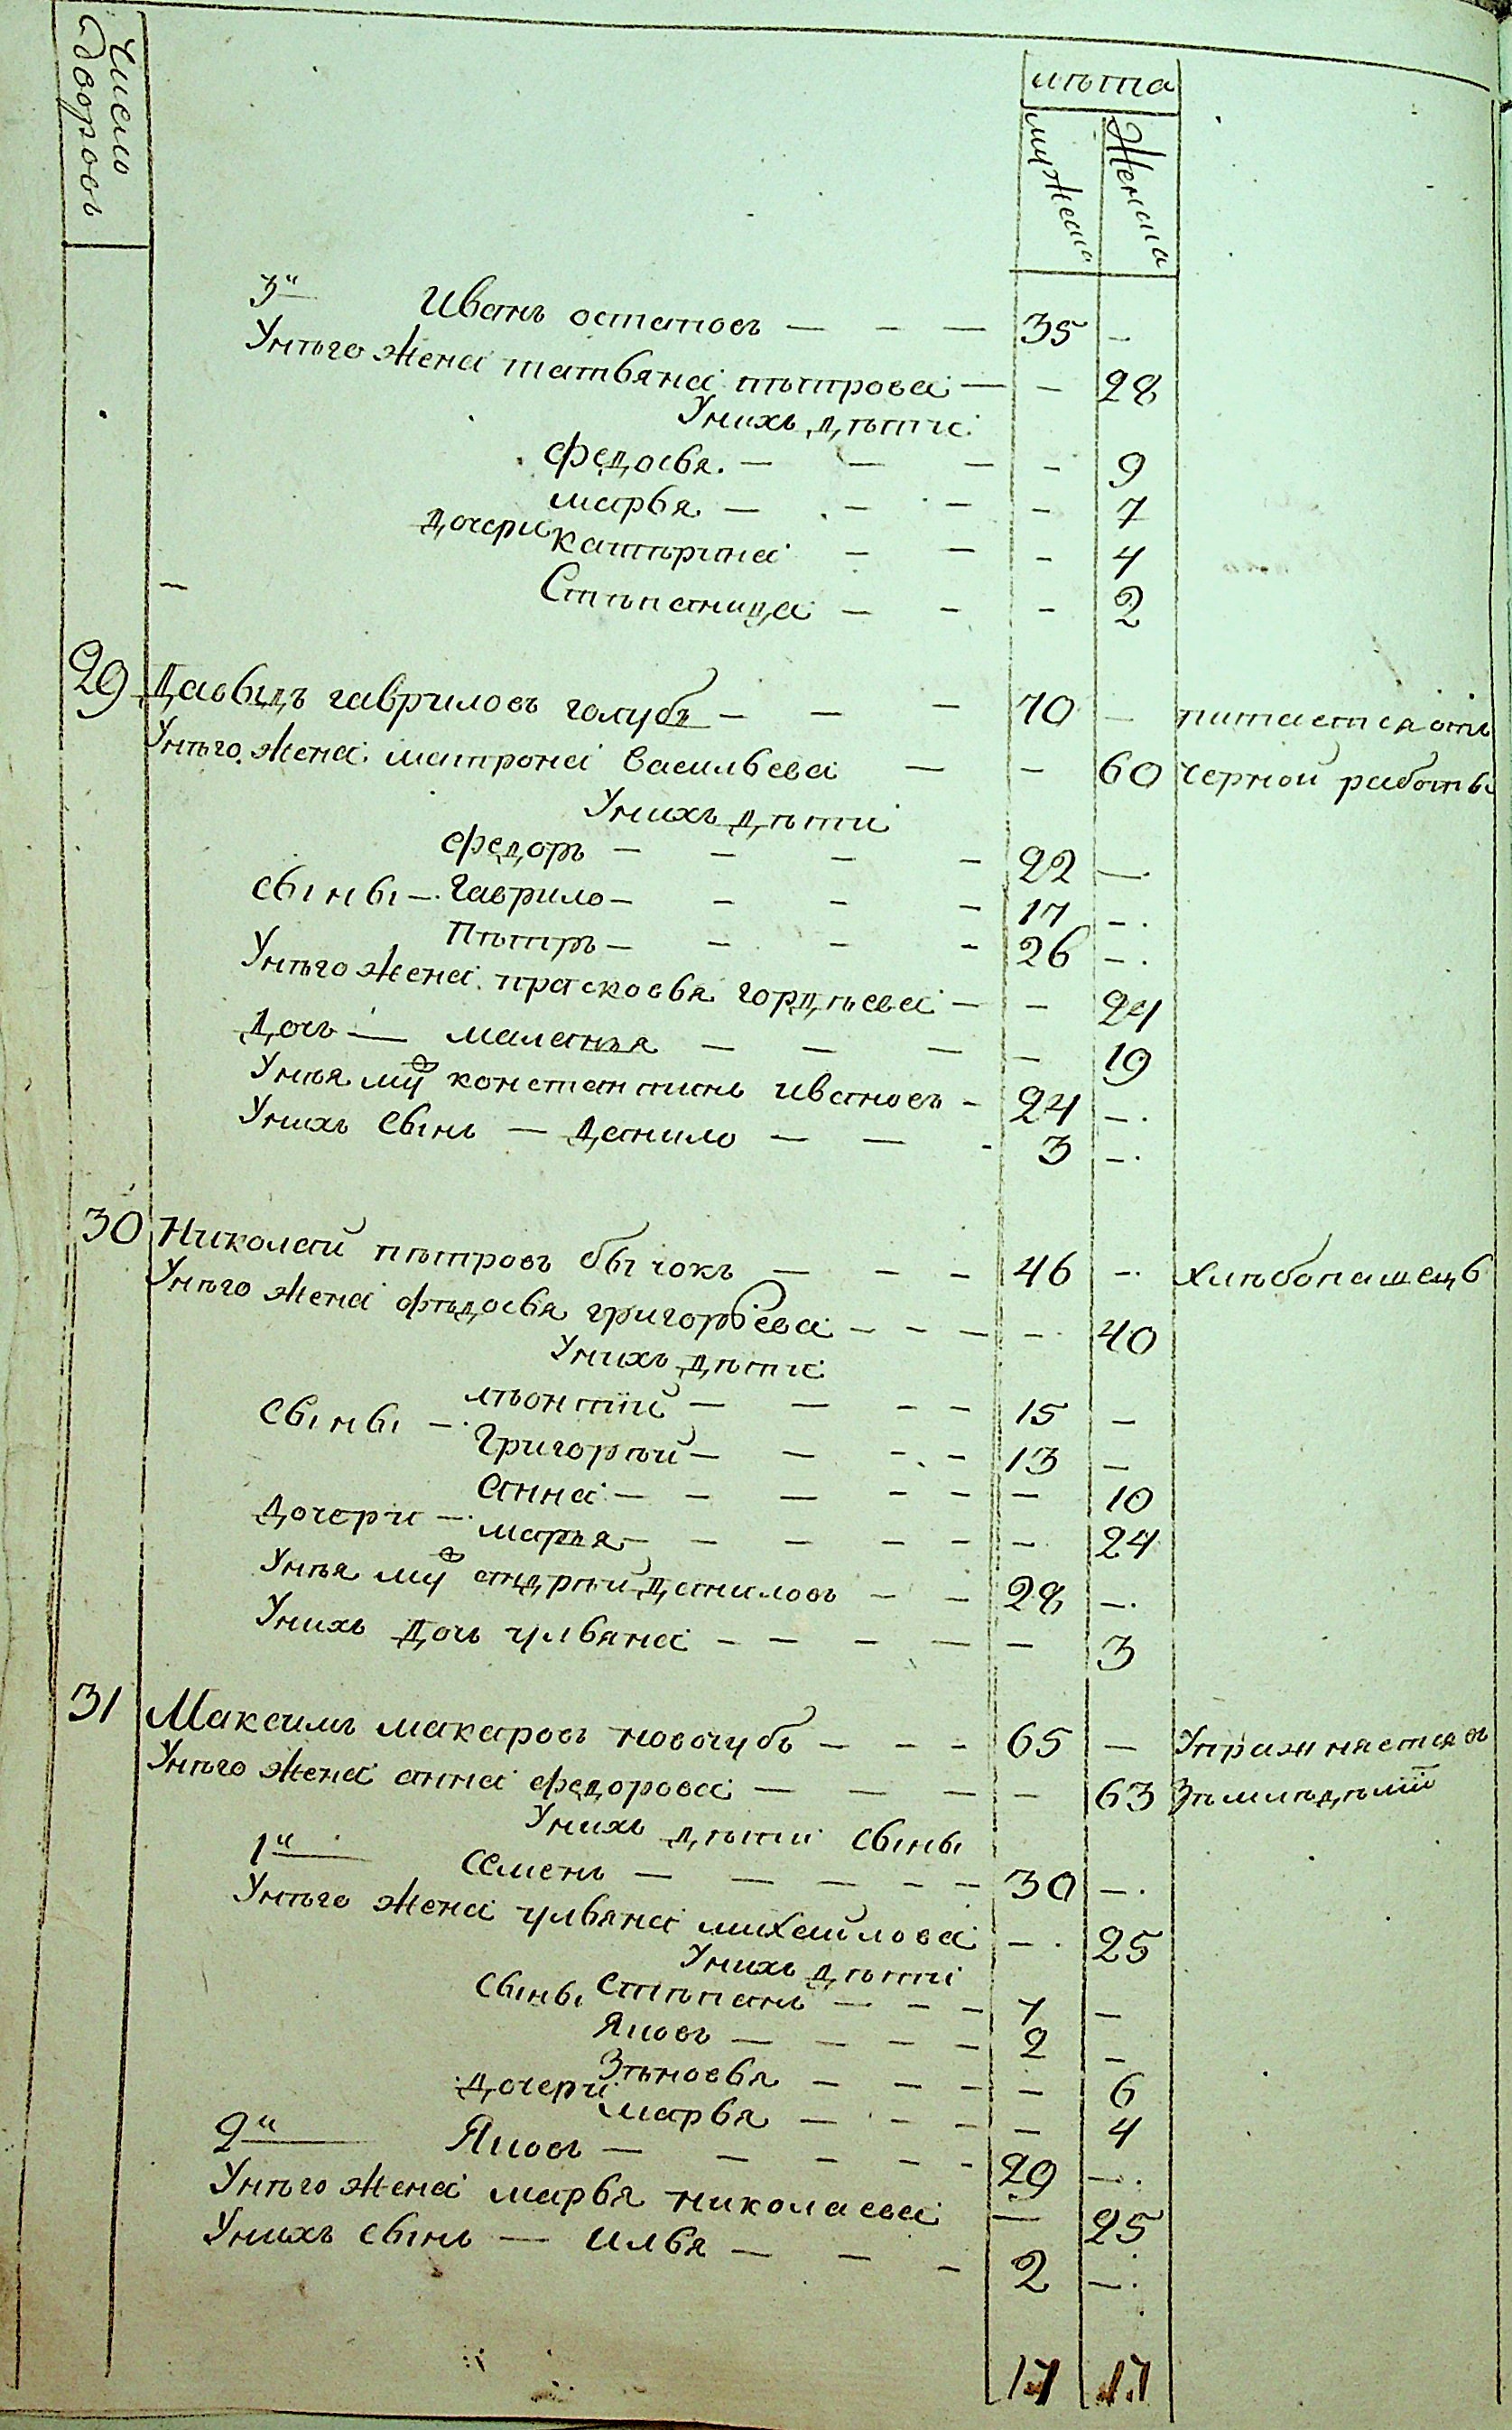 Число
дворовъ
лѣта
мужеска
Женска
3й Иванъ остаповъ — — — 35 —
Унѣго жена татьяна пѣтрова — — 28
Унихъ дѣти
федосья — — — — 9
марья — — — — 7
дочери катѣрина — — — 4
Стѣпанида — — — 2
29 Давыдъ гавриловъ голубъ — — — 70 — питается отъ
Унѣго жена матрона васильева — — 60 черной работы
Унихъ дѣти
федоръ — — — — 22 —
сыны — гаврило — — — — 17 —
Пѣтръ — — — — 26 —
Унѣго жена прасковья гордѣева — — 24
Дочь — маланья — — — — 19
Унѣя му константинъ ивановъ — 24 —
Унихъ сынъ — Данило — — — 3 —
30 Николай пѣтровъ бычокъ — — — 46 — хлѣбопашецъ
Унѣго жена фѣдосья григорьева — — — — 40
Унихъ дѣти
лѣонтій — — — — 15 —
Сыны — Григорѣй — — — — 13 —
анна — — — — — — 10
Дочери — марья — — — — — — 24
Унѣя му андрѣй даниловъ — — 28 —
Унихъ дочь ульяна — — — — — 3
31 Максимъ макаровъ новочубъ — — — 65 — Упражняется въ
Унѣго жена анна федорова — — — — 63 Зѣмлѣдѣліи
Унихъ дѣти сыны
1й Семенъ — — — — — 30 —
Унѣго жена ульяна михайлова — 25
Унихъ дѣти
Сыны Стѣпанъ — — — 7 —
Яковъ — — — — 2 —
Зѣновья — — — — 6
Дочери марья — — — — 4
2й Яковъ — — — — — 29 —
Унѣго жена марья николаева — 25
Унихъ сынъ — илья — — — 2 —
17 17